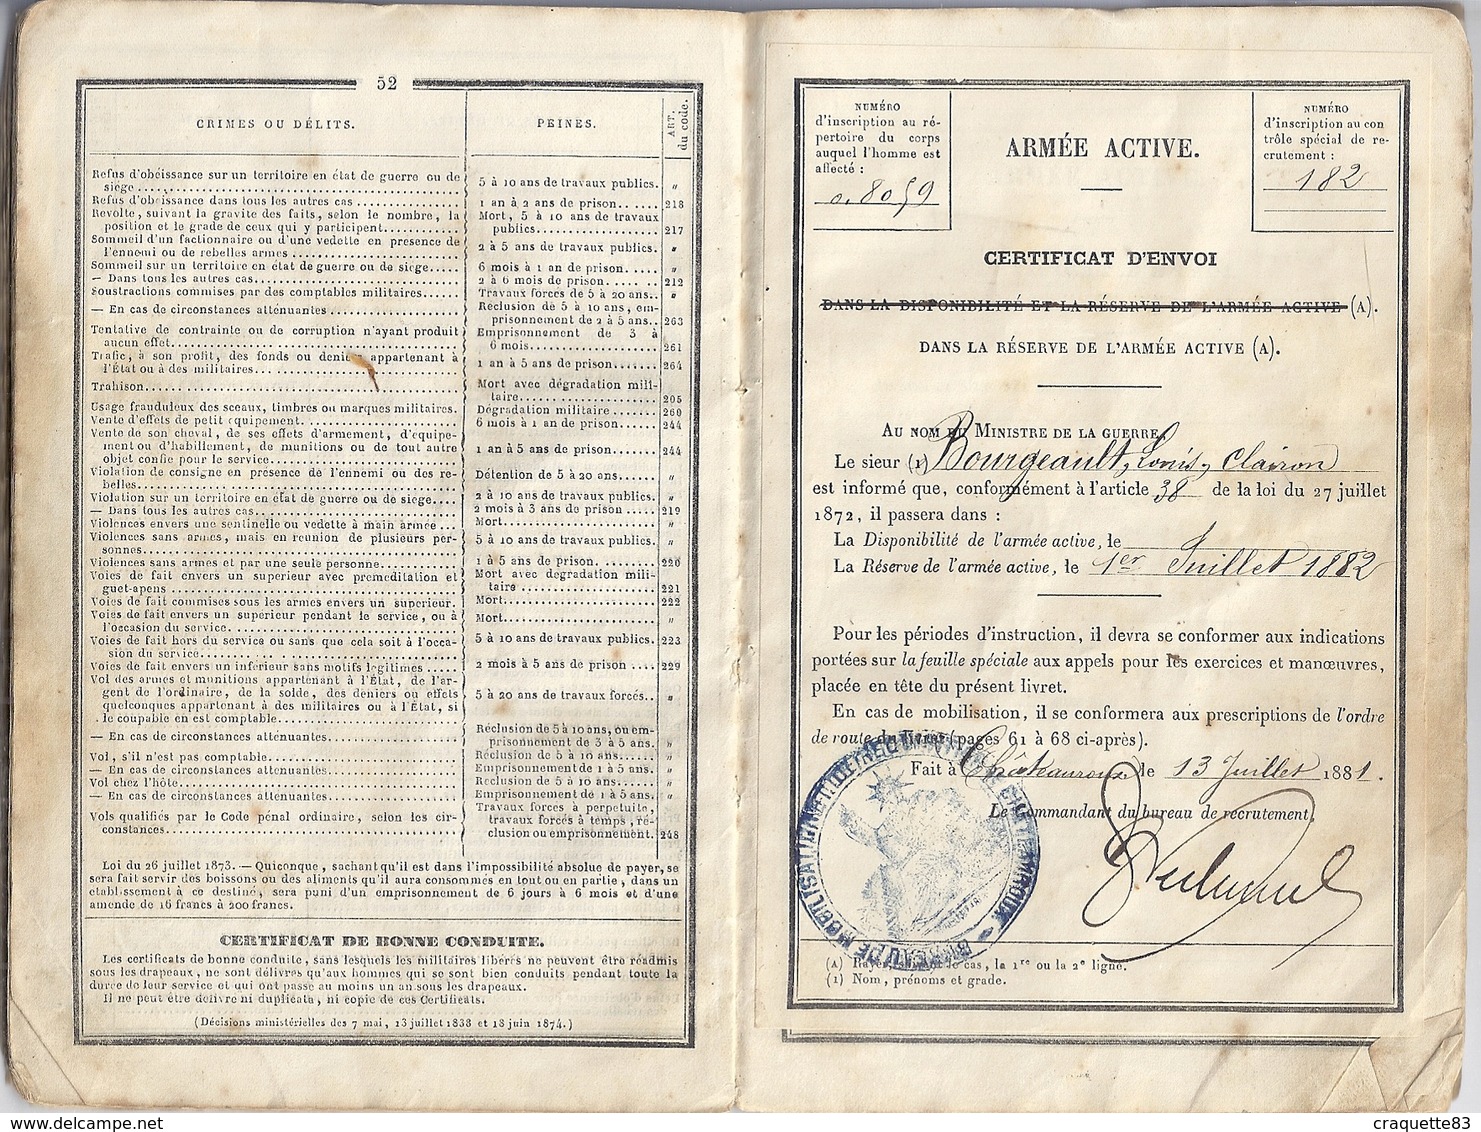 52
CRIMES OU DÉLITS.
PEINES.
ART. du code.
Refus d'obéissance sur un territoire en état de guerre ou de
siège..... 5 à 10 ans de travaux publics. "
Refus d'obéissance dans tous les autres cas..... 1 an à 2 ans de prison..... 218
Revolte, suivant la gravité des faits, selon le nombre, la Mort, 5 à 10 ans de travaux
position et le grade de ceux qui y participent..... publics..... 217
Sommeil d'un factionnaire ou d'une vedette en présence de
l'ennemi ou de rebelles armés..... 2 à 5 ans de travaux publics. "
Sommeil sur un territoire en état de guerre ou de siège..... 6 mois à 1 an de prison..... "
— Dans tous les autres cas..... 2 à 6 mois de prison..... 212
Soustractions commises par des comptables militaires..... Travaux forcés de 5 à 20 ans.. "
— En cas de circonstances atténuantes..... Réclusion de 5 à 10 ans, em-
prisonnement de 2 à 5 ans.. 263
Tentative de contrainte ou de corruption n'ayant produit Emprisonnement de 3 à
aucun effet..... 6 mois..... 261
Trafic, à son profit, des fonds ou denie appartenant à
l'État ou à des militaires..... 1 an à 5 ans de prison..... 264
Trahison..... Mort avec dégradation mili-
taire..... 205
Usage frauduleux des sceaux, timbres ou marques militaires. Dégradation militaire..... 260
Vente d'effets de petit équipement..... 6 mois à 1 an de prison..... 244
Vente de son cheval, de ses effets d'armement, d'équipe-
ment ou d'habillement, de munitions ou de tout autre
objet confié pour le service..... 1 an à 5 ans de prison..... 244
Violation de consigne en présence de l'ennemi ou des re-
belles..... Détention de 5 à 20 ans..... "
Violation sur un territoire en état de guerre ou de siège..... 2 à 10 ans de travaux publics. "
— Dans tous les autres cas..... 2 mois à 3 ans de prison..... 219
Violences envers une sentinelle ou vedette à main armée... Mort..... "
Violences sans armes, mais en réunion de plusieurs per-
sonnes..... 5 à 10 ans de travaux publics. "
Violences sans armes et par une seule personne..... 1 à 5 ans de prison..... 220
Voies de fait envers un supérieur avec préméditation et Mort avec dégradation mili-
guet-apens..... taire..... 221
Voies de fait commises sous les armes envers un supérieur. Mort..... 222
Voies de fait envers un supérieur pendant le service, ou à
l'occasion du service..... Mort..... "
Voies de fait hors du service ou sans que cela soit à l'occa-
sion du service..... 5 à 10 ans de travaux publics. 223
Voies de fait envers un inférieur sans motifs légitimes..... 2 mois à 5 ans de prison.... 229
Vol des armes et munitions appartenant à l'État, de l'ar-
gent de l'ordinaire, de la solde, des deniers ou effets
quelconques appartenant à des militaires ou à l'État, si
le coupable en est comptable..... 5 à 20 ans de travaux forcés.. "
— En cas de circonstances atténuantes..... Réclusion de 5 à 10 ans, ou em-
prisonnement de 3 à 5 ans.. "
Vol, s'il n'est pas comptable..... Réclusion de 5 à 10 ans..... "
— En cas de circonstances atténuantes..... Emprisonnement de 1 à 5 ans. "
Vol chez l'hôte..... Réclusion de 5 à 10 ans..... "
— En cas de circonstances atténuantes..... Emprisonnement de 1 à 5 ans. "
Vols qualifiés par le Code pénal ordinaire, selon les cir-
constances..... Travaux forcés à perpétuité,
travaux forcés à temps, ré-
clusion ou emprisonnement. 248
Loi du 26 juillet 1873. — Quiconque, sachant qu'il est dans l'impossibilité absolue de payer, se
sera fait servir des boissons ou des aliments qu'il aura consommés en tout ou en partie, dans un
établissement à ce destiné, sera puni d'un emprisonnement de 6 jours à 6 mois et d'une
amende de 16 francs à 200 francs.
CERTIFICAT DE BONNE CONDUITE.
Les certificats de bonne conduite, sans lesquels les militaires libérés ne peuvent être réadmis
sous les drapeaux, ne sont délivrés qu'aux hommes qui se sont bien conduits pendant toute la
durée de leur service et qui ont passé au moins un an sous les drapeaux.
Il ne peut être délivré ni duplicata, ni copie de ces Certificats.
(Décisions ministérielles des 7 mai, 13 juillet 1838 et 18 juin 1874.)
NUMÉRO
d'inscription au ré-
pertoire du corps
auquel l'homme est
affecté :
0.8059
ARMÉE ACTIVE.
NUMÉRO
d'inscription au con
trôle spécial de re-
crutement :
182
CERTIFICAT D'ENVOI
DANS LA DISPONIBILITÉ ET LA RÉSERVE DE L'ARMÉE ACTIVE (A).
DANS LA RÉSERVE DE L'ARMÉE ACTIVE (A).
AU NOM DU MINISTRE DE LA GUERRE,
Le sieur (1) Bourgeault, Louis, Clairon
est informé que, conformément à l'article 38 de la loi du 27 juillet
1872, il passera dans :
La Disponibilité de l'armée active, le
La Réserve de l'armée active, le 1er Juillet 1882
Pour les périodes d'instruction, il devra se conformer aux indications
portées sur la feuille spéciale aux appels pour les exercices et manœuvres,
placée en tête du présent livret.
En cas de mobilisation, il se conformera aux prescriptions de l'ordre
de route du livret (pages 61 à 68 ci-après).
Fait à Châteauroux, le 13 Juillet 1881.
Le Commandant du bureau de recrutement,
(A) Rayer, suivant le cas, la 1re ou la 2e ligne.
(1) Nom, prénoms et grade.
craquette83